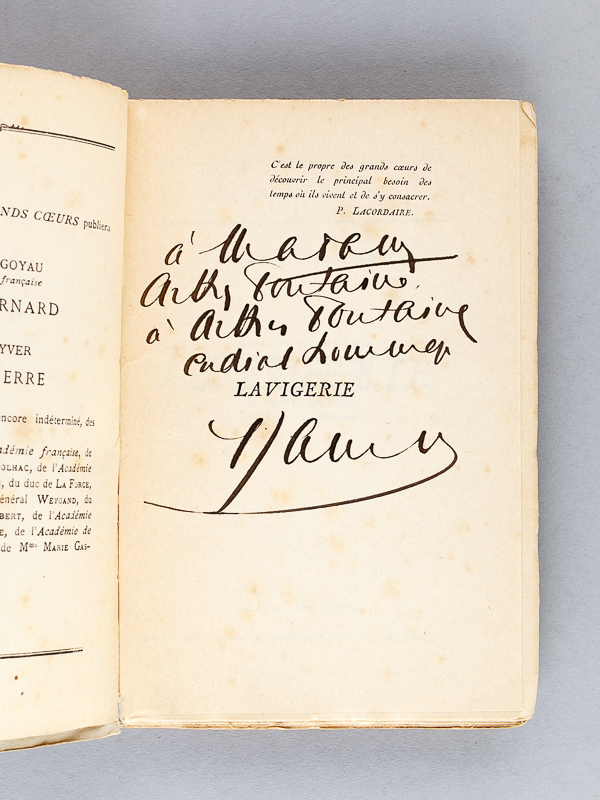 NDS CŒURS publiera
GOYAU
française
RNARD
YVER
ERRE
encore indéterminé, des
adémie française, de
OLHAC, de l'Académie
, du duc de LA FORCE,
énéral WEYGAND, du
BERT, de l'Académie
E, de l'Académie de
de Mme MARIE GAS-
C'est le propre des grands cœurs de
découvrir le principal besoin des
temps où ils vivent et de s'y consacrer.
P. LACORDAIRE.
à Madame
Arthur Fontaine
à Arthur Fontaine
cordial hommage
LAVIGERIE